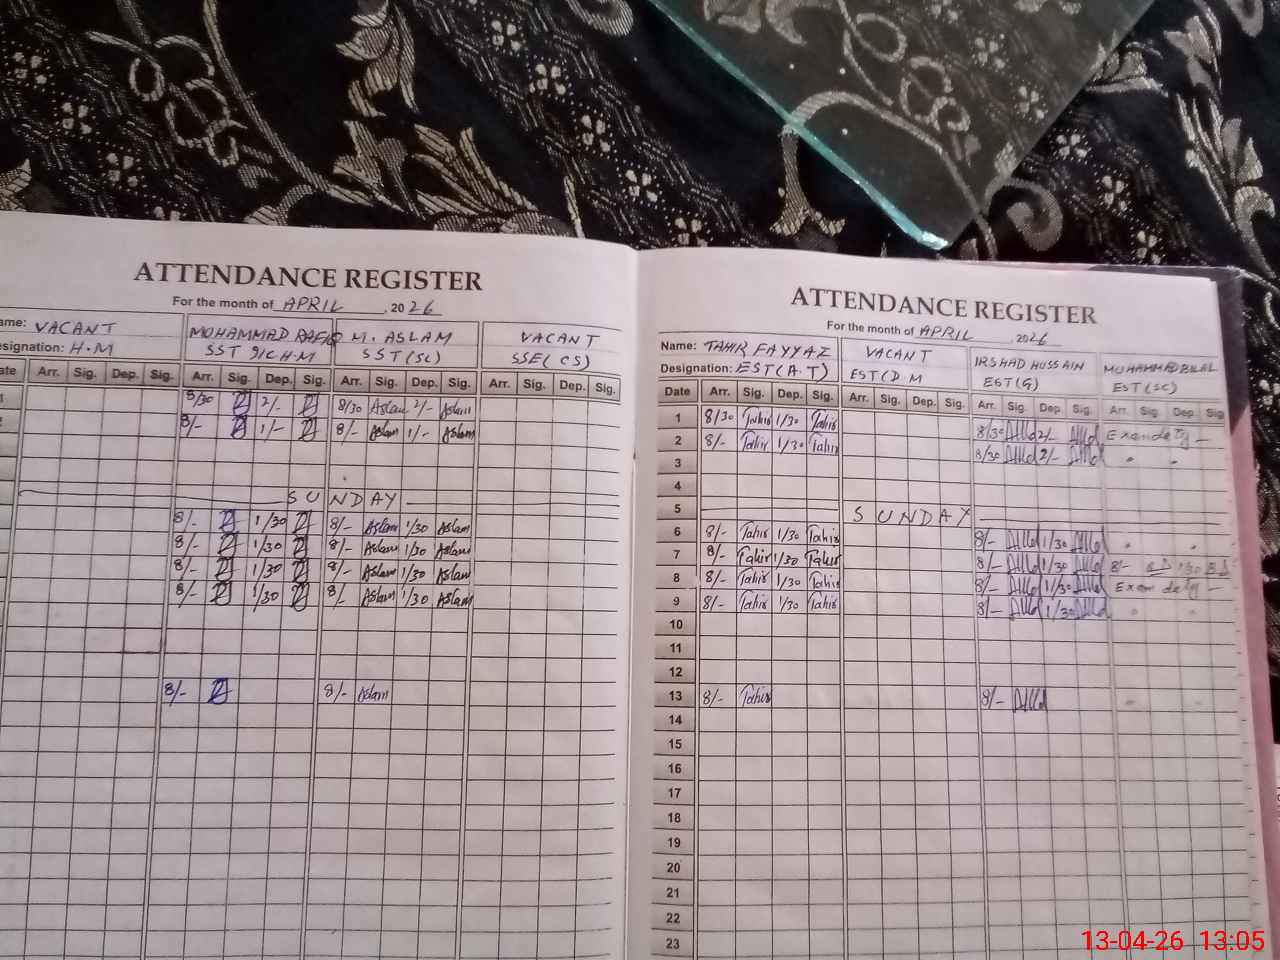 ATTENDANCE REGISTER
For the month of APRIL, 2026
ame: VACANT
esignation: H.M
MOHAMMAD RAFIQ
SST I/C H.M
M. ASLAM
SST (SC)
VACANT
SSE (CS)
ate Arr. Sig. Dep. Sig. Arr. Sig. Dep. Sig. Arr. Sig. Dep. Sig. Arr. Sig. Dep. Sig.
8/30 2/- 8/30 Aslam 2/- Aslam
8/- 1/- 8/- Aslam 1/- Aslam
SUNDAY
8/- 1/30 8/- Aslam 1/30 Aslam
8/- 1/30 8/- Aslam 1/30 Aslam
8/- 1/30 8/- Aslam 1/30 Aslam
8/- 1/30 8/- Aslam 1/30 Aslam
8/- 8/- Aslam
ATTENDANCE REGISTER
For the month of APRIL 2026
Name: TAHIR FAYYAZ
Designation: EST (A.T)
VACANT
EST (D.M
IRSHAD HUSSAIN
EST (G)
MUHAMMAD BILAL
EST (SC)
Date Arr. Sig. Dep. Sig. Arr. Sig. Dep. Sig. Arr. Sig. Dep. Sig. Arr. Sig. Dep. Sig
1 8/30 Tahir 1/30 Tahir 8/30 2/-
2 8/- Tahir 1/30 Tahir 8/30 2/-
3
4
5 SUNDAY
6 8/- Tahir 1/30 Tahir 8/- 1/30
7 8/- Tahir 1/30 Tahir 8/- 1/30 8/- 1/30
8 8/- Tahir 1/30 Tahir 8/- 1/30
9 8/- Tahir 1/30 Tahir 8/- 1/30
10
11
12
13 8/- Tahir 8/-
14
15
16
17
18
19
20
21
22
23
13-04-26 13:05